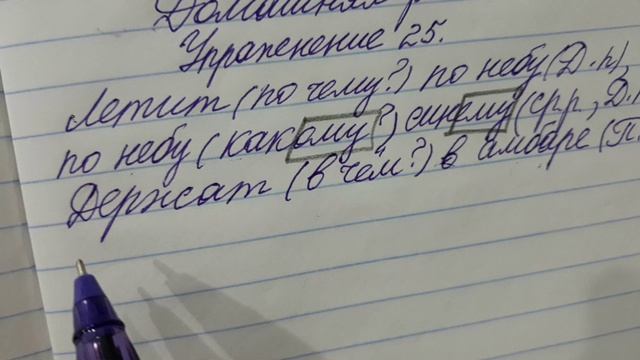 Домашняя р
Упражнение 25.
Летит (по чему?) по небу (Д.п),
по небу (какому?) синему (ср.р., Д.
Держат (в чём?) в амбаре (П.